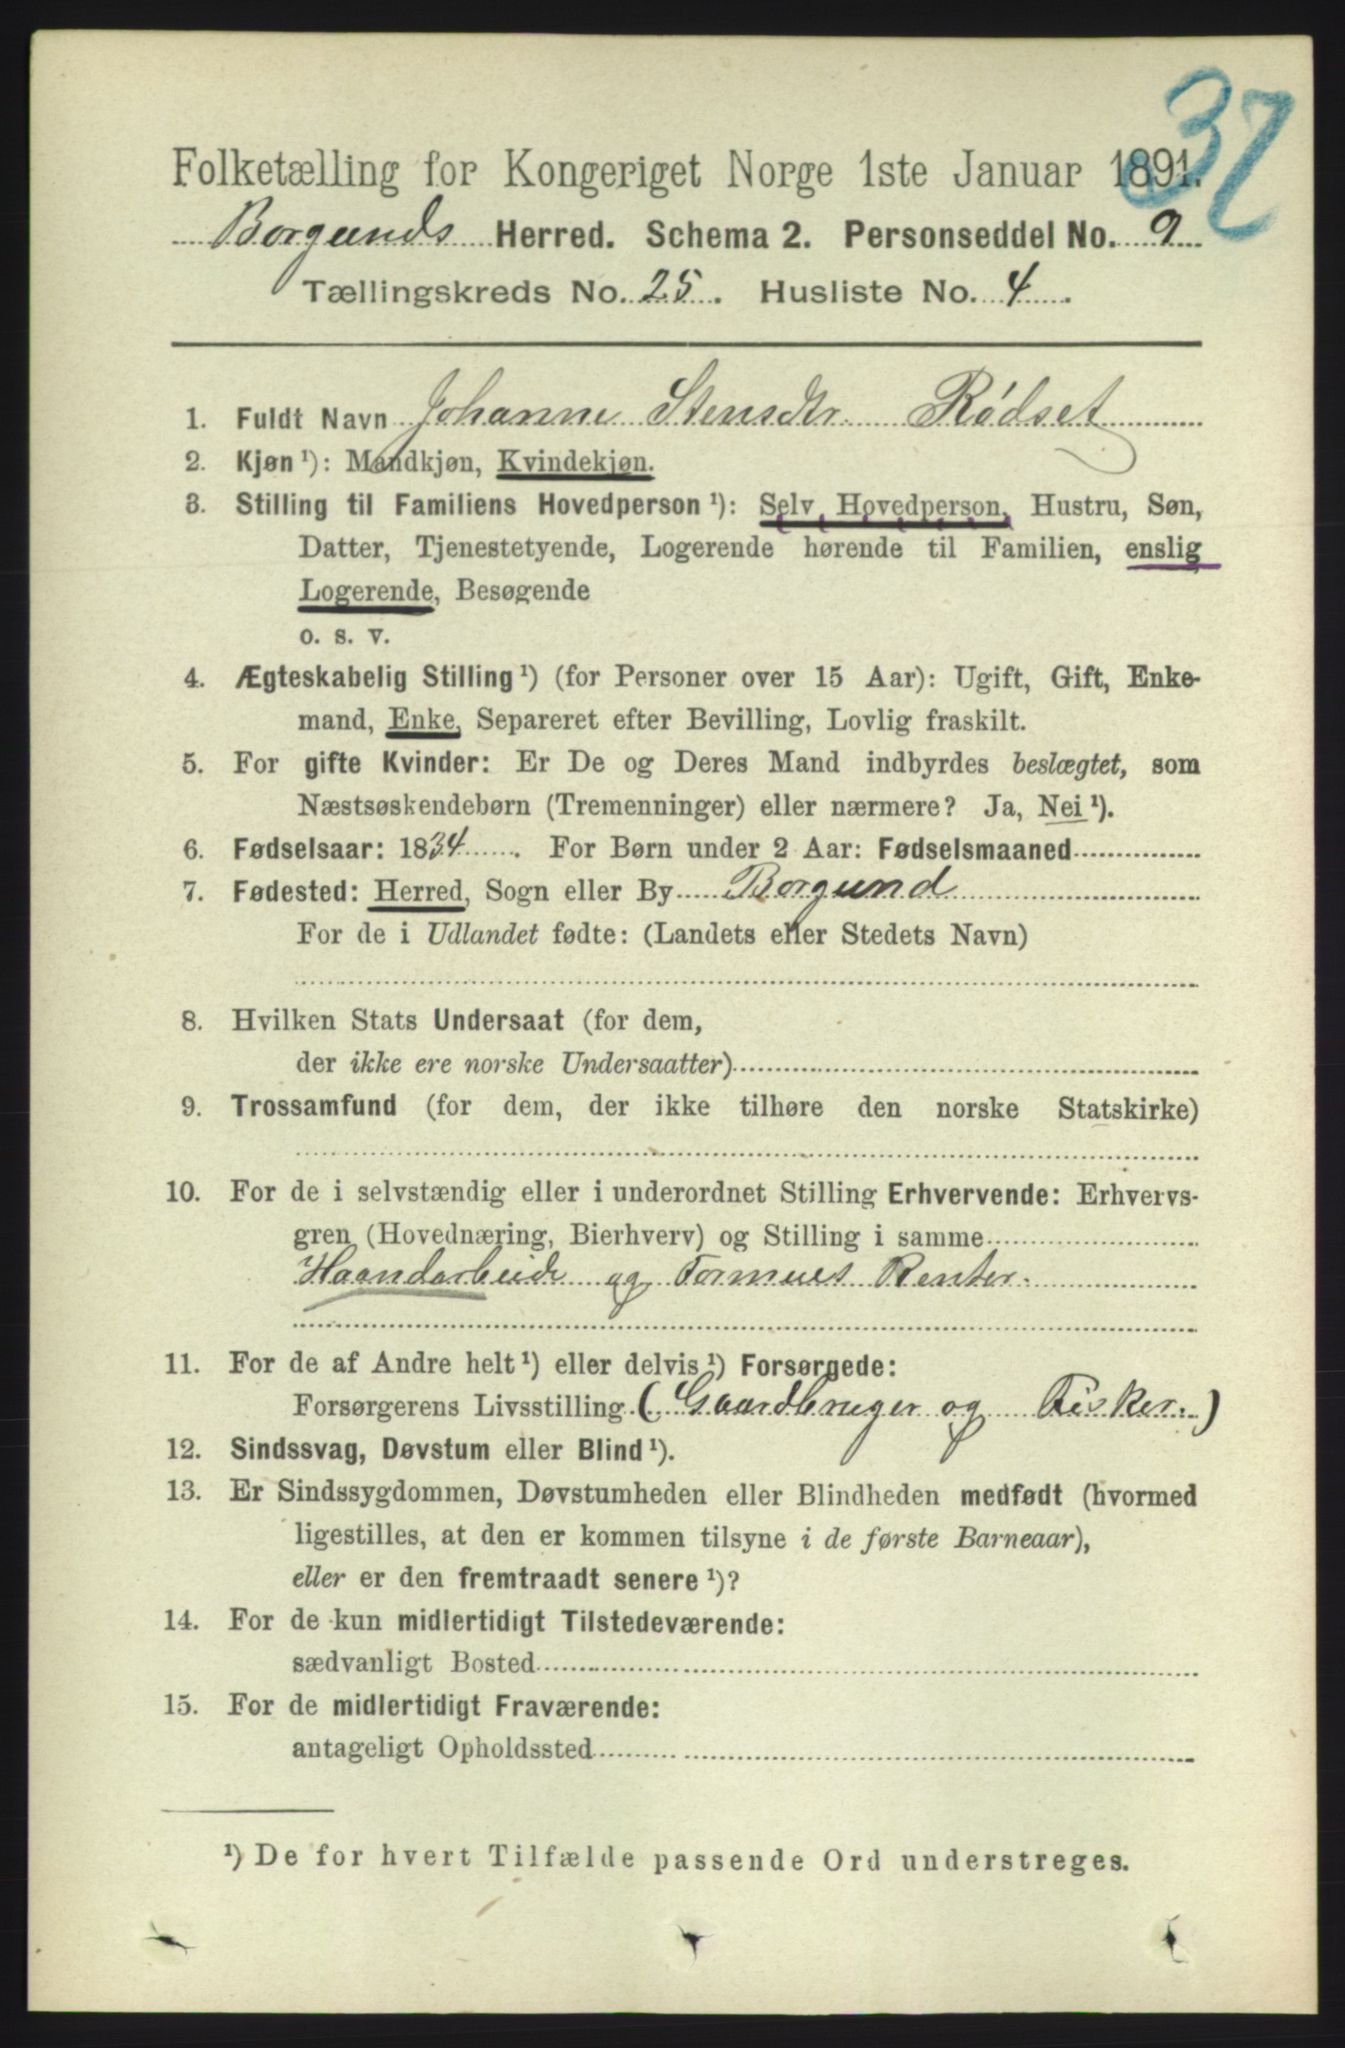 37
Folketælling for Kongeriget Norge 1ste Januar 1891.
Borgunds Herred. Schema 2. Personseddel No. 9
Tællingskreds No. 25. Husliste No. 4.
1. Fuldt Navn Johanne Stensdtr. Rødset
2. Kjøn ¹): Mandkjøn, Kvindekjøn.
3. Stilling til Familiens Hovedperson ¹): Selv Hovedperson, Hustru, Søn,
Datter, Tjenestetyende, Logerende hørende til Familien, enslig
Logerende, Besøgende
o. s. v.
4. Ægteskabelig Stilling ¹) (for Personer over 15 Aar): Ugift, Gift, Enke-
mand, Enke, Separeret efter Bevilling, Lovlig fraskilt.
5. For gifte Kvinder: Er De og Deres Mand indbyrdes beslægtet, som
Næstsøskendebørn (Tremenninger) eller nærmere? Ja, Nei ¹).
6. Fødselsaar: 1834. For Børn under 2 Aar: Fødselsmaaned
7. Fødested: Herred, Sogn eller By Borgund
For de i Udlandet fødte: (Landets eller Stedets Navn)
8. Hvilken Stats Undersaat (for dem,
der ikke ere norske Undersaatter)
9. Trossamfund (for dem, der ikke tilhøre den norske Statskirke)
10. For de i selvstændig eller i underordnet Stilling Erhvervende: Erhvervs-
gren (Hovednæring, Bierhverv) og Stilling i samme
Haandarbeide og Formues Renter.
11. For de af Andre helt ¹) eller delvis ¹) Forsørgede:
Forsørgerens Livsstilling (Gaardbruger og Fisker.)
12. Sindssvag, Døvstum eller Blind ¹).
13. Er Sindssygdommen, Døvstumheden eller Blindheden medfødt (hvormed
ligestilles, at den er kommen tilsyne i de første Barneaar),
eller er den fremtraadt senere ¹)?
14. For de kun midlertidigt Tilstedeværende:
sædvanligt Bosted
15. For de midlertidigt Fraværende:
antageligt Opholdssted
¹) De for hvert Tilfælde passende Ord understreges.